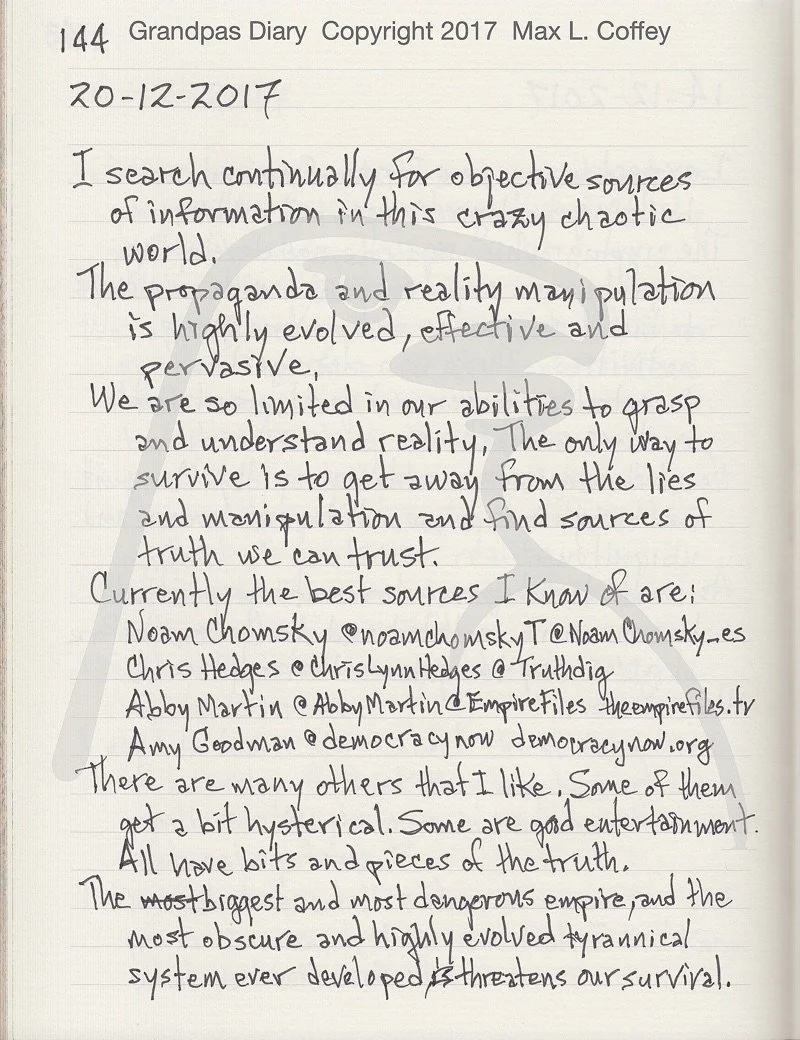 144 Grandpas Diary Copyright 2017 Max L. Coffey
20-12-2017
I search continually for objective sources
of information in this crazy chaotic
world.
The propaganda and reality manipulation
is highly evolved, effective and
pervasive,
We are so limited in our abilities to grasp
and understand reality. The only way to
survive is to get away from the lies
and manipulation and find sources of
truth we can trust.
Currently the best sources I know of are:
Noam Chomsky @noamchomskyT @NoamChomsky_es
Chris Hedges @ChrisLynnHedges @Truthdig
Abby Martin @AbbyMartin @EmpireFiles theempirefiles.tv
Amy Goodman @democracynow democracynow.org
There are many others that I like. Some of them
get a bit hysterical. Some are good entertainment.
All have bits and pieces of the truth.
The most biggest and most dangerous empire, and the
most obscure and highly evolved tyrannical
system ever developed, is threatens our survival.